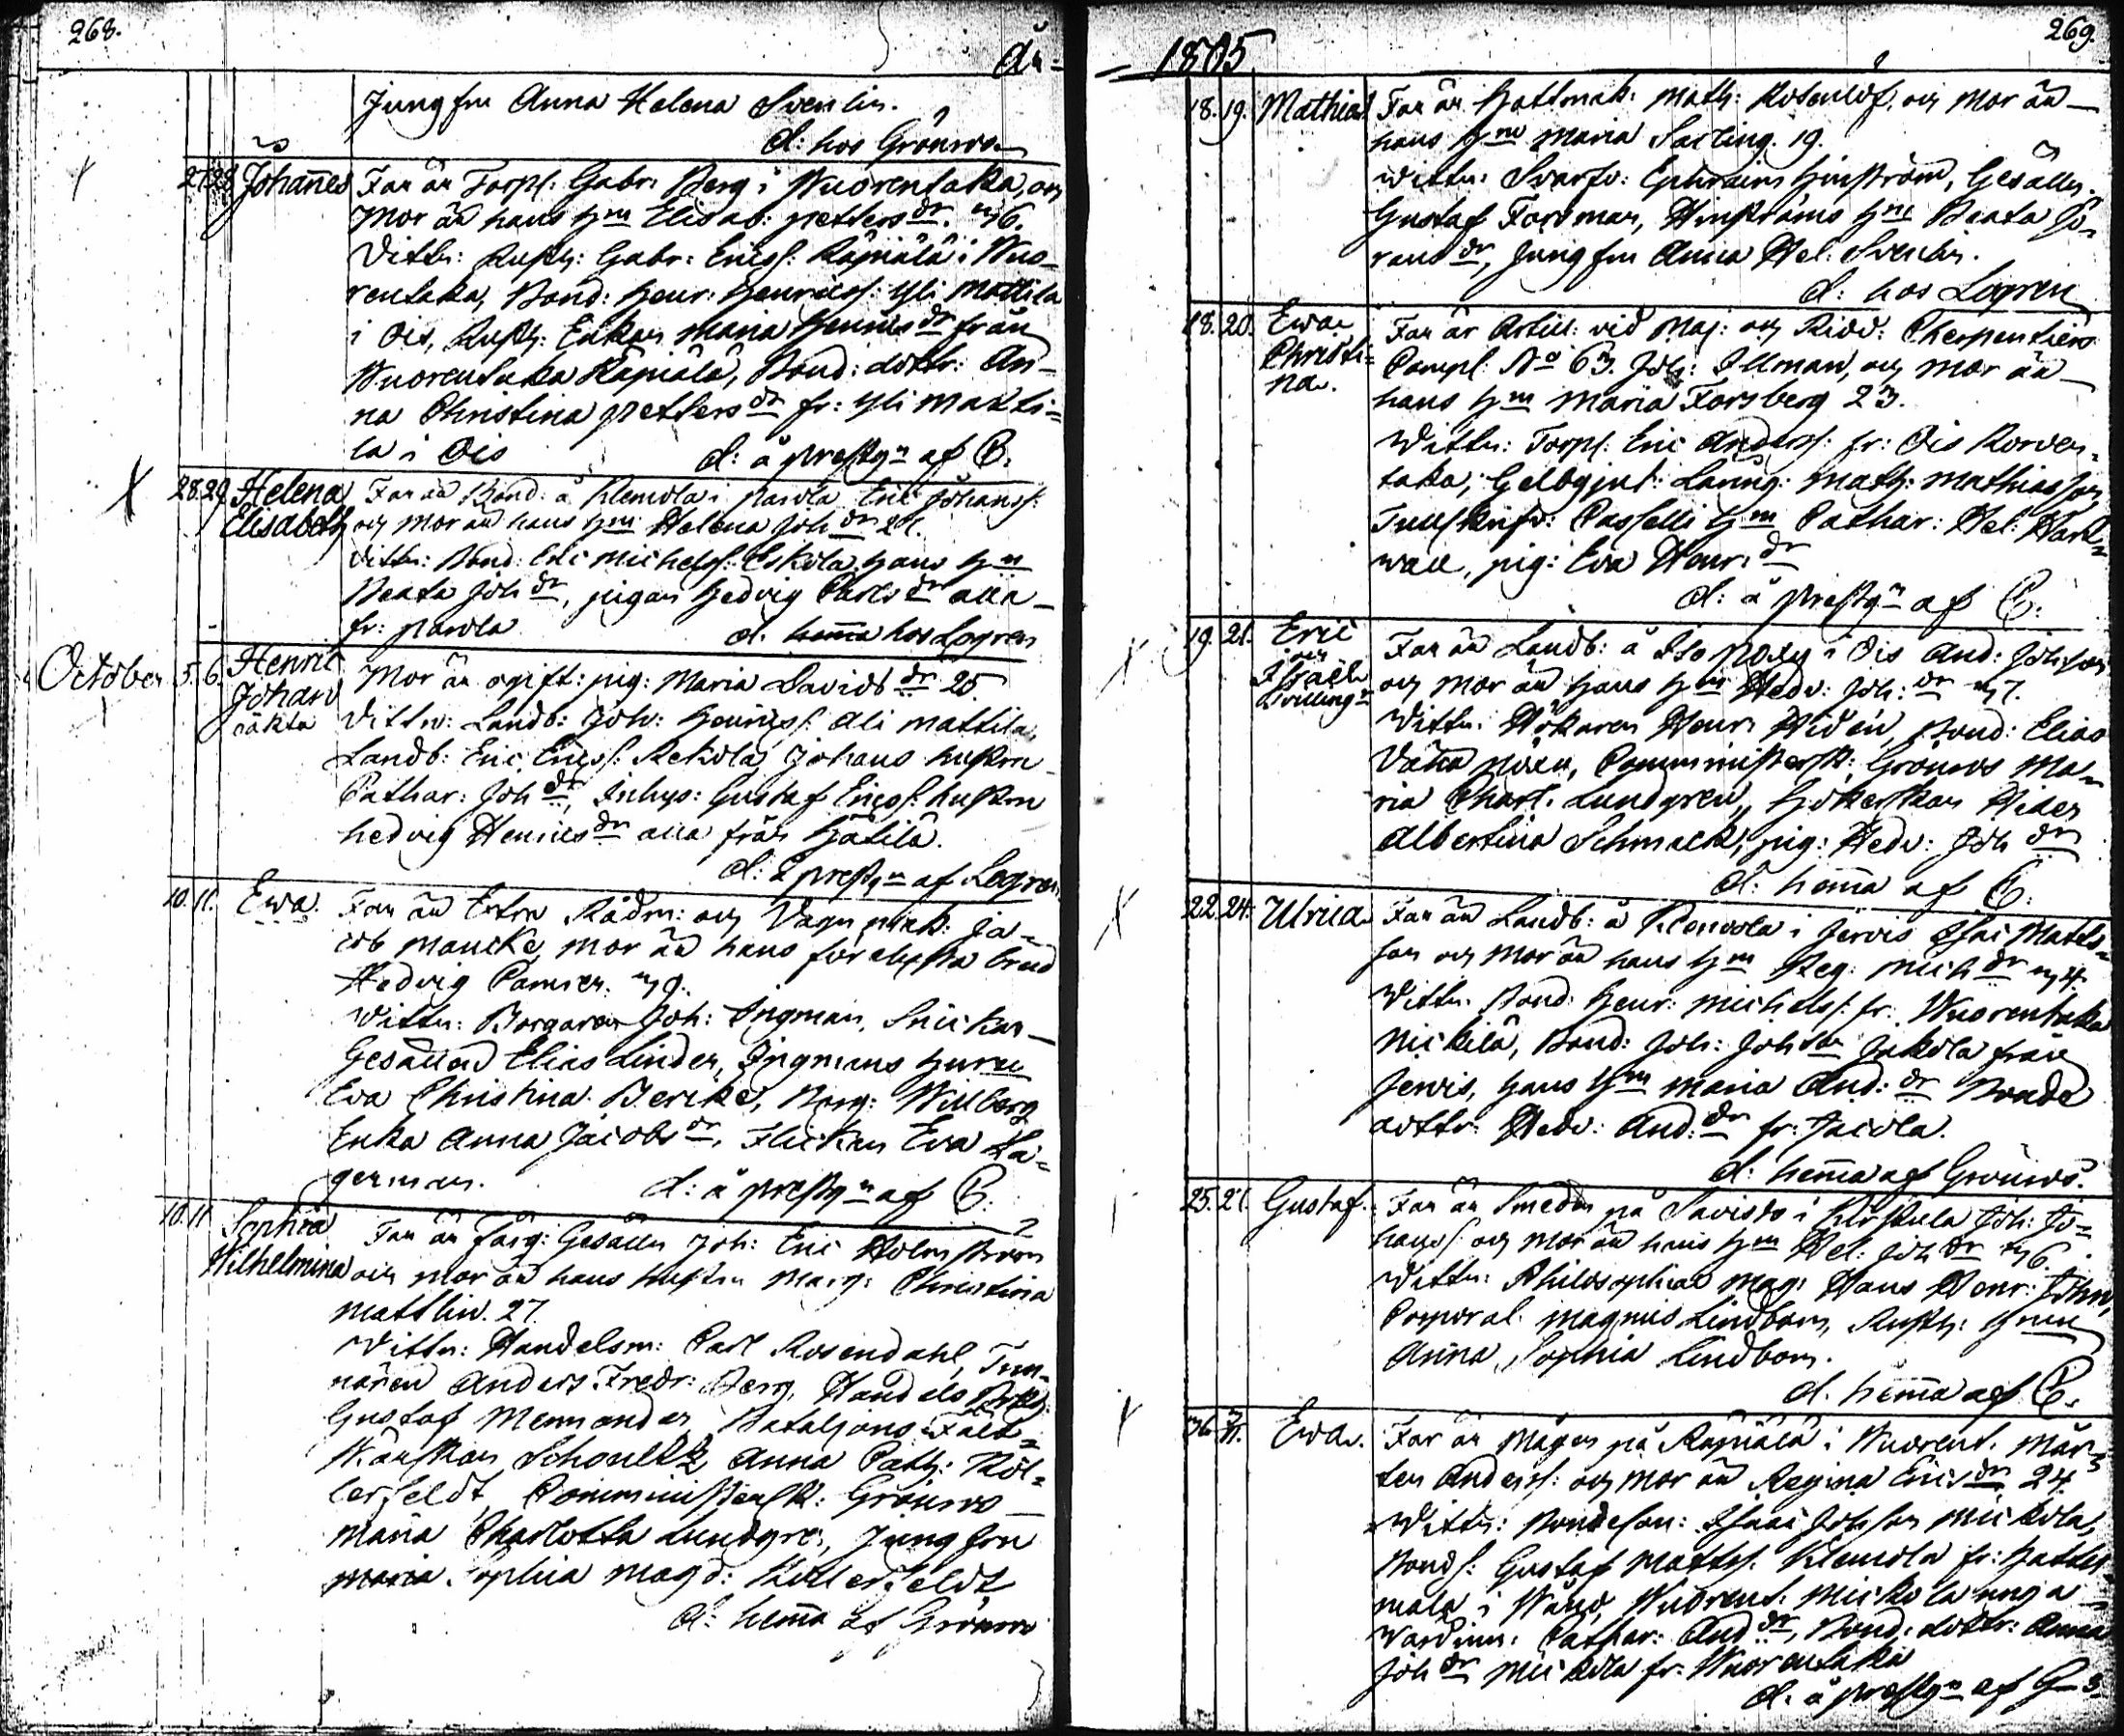 268.
År
Jungfru Anna Helena Svenlin.
d: hos Grönros
27 28 Johannes Far är Torp: Gabr: Berg i Wuorentaka, och
Mor är hans h:u Elisab: petters dr. 36.
Vittn: Rusth: Gabr: Ericss: Räpiälä i Wuo-
rentaka, Bond: Henr: Henricss: Yli Mattila
i Ois, Rusth: Enkan Maria Henricsdr från
Wuorentaka Räpiälä, Bond: dottr: An-
na Christina petters dr fr: Yli Matti-
la i Ois d: å prestgn af C.
28. 29 Helena Far är Bond: å Klemola i parola Eric Johanss:
Elisabeth och Mor är hans h:u Helena Joh dr 21.
Vittn: Bond: Eric Michelss: Eskola, hans h:u
Beata Joh dr, pigan Hedvig Carls dr alla
fr: parola d. hema hos Logren
October 5. 6. Henric Mor är ogift: pig: Maria Davids dr 25.
Johan
oäkta Vittn: Landb: Joh: Henricss: Ali Mattila,
Landb: Eric Ericss: Rekola, Johans hustru
Cathar: Joh dr, Inhys: Gustaf Ericss: hustru
hedvig Henrics dr alla från Hätilä.
d: å prestgn af Logren
10. 11. Ewa. Far är Extra Rådm: och Vagn mak: Ja-
cob Mancke, mor är hans förlofta brud
Hedvig Carner. 39.
Vittn: Borgaren Joh: Ingman, Snickar
Gesällen Elias Linder, Ingmans hustru
Eva Christina Bericke, Borg: Willberg
Enka Anna Jacobs dr, Flickan Eva La-
german. d: å prestgn af C.
10. 11 Sophia Far är Färg: Gesällen Joh: Eric Holmström
Wilhelmina och mor är hans hustru Marg: Christina
Mattlin. 27.
Vittn: Handelsm: Carl Rosendahl, Tun-
nären Anders Fredr: Berg, Handels Bokh:
Gustaf Mennander, Bataljons Fält-
Wäbskan Schoultz, Anna Cath: Köl-
lerfeldt, Comministersk: Grönros
Maria Charlotta Lundgren, Jungfru
Maria Sophia Magd: Köllerfeldt
d: hema af Grönros
1805
269.
18. 19. Mathias Far är Hattmak: Math: Rosenlöf, och Mor är
hans h:u Maria Sarling. 19.
Vittn: Svarfv: Ephraim Hinström, Gesällen
Gustaf Forsman, Hinströms h:u Beata Jö-
rans dr, Jungfru Anna Hel: Svenlin.
d: hos Logren
18. 20. Ewa Far är Artill: vid Maj: och Ridd: Charpentiers
Christi-
na. Comp: No 63. Joh: Illman, och mor är
hans h:u Maria Forsberg 23.
Vittn: Torp: Eric Anderss: fr: Ois Korven-
taka, Gelbgjut: Lärling: Math: Mathiasson
Cathar: Hel: Hart-
wall, pig: Eva Henr: dr
d: å prestgn af C:
19. 21. Eric Far är Landb: å Iso poxy i Ois And: Johsson
och
Isaac
Tvillingr och Mor är hans h:u Hedv: Joh: dr 37.
Vittn: Hökaren Henr: Widén, Bond: Elias
Vähä poxu, Comministersk: Grönros Ma-
ria Charl: Lundgren, Hökerskan Widen
Albertina Schmack, pig: Hedv: Joh dr
d: hema af C:
22. 24. Ulrica Far är Landb: å Klemola i Jervis Isac Matts-
son och Mor är hans h:u Reg: Mich dr 34.
Vittn: Bond: Henr: Michelss: fr: Wuorentaka
Mickilä, Bond: Joh: Johson Jakola från
Jervis, hans h:u Maria And: dr Bonde
dottr: Hedv: And: dr fr: Jacola.
d: hema af Grönros.
25. 27. Gustaf. Far är Smeden på Savisto i Kirstula Joh: Jo-
hanss: och Mor är hans h:u Hel: Joh dr 36.
Vittn: Philosophiae Mag: Hans Henr: John,
Corporal Magnus Lindbom, Rusth: hustru
Anna Sophia Lindbom.
d. hema af C.
Ewa. Far är Mågen på Räpiälä i Wuorent: Mår-
ten Anderss: och Mor är Regina Erics dr 24.
Vittn: Bondeson: Isaac Johsson Mickola,
Bonds: Gustaf Mattss: Klemola fr: Hattel-
mala i Wånå, Wuorent: Mickola unga
Wärdinn: Cathar: And dr, Bond: dottr: Anna
Joh dr Mickola fr: Wuorentaka
d: å prestgn af G-s.